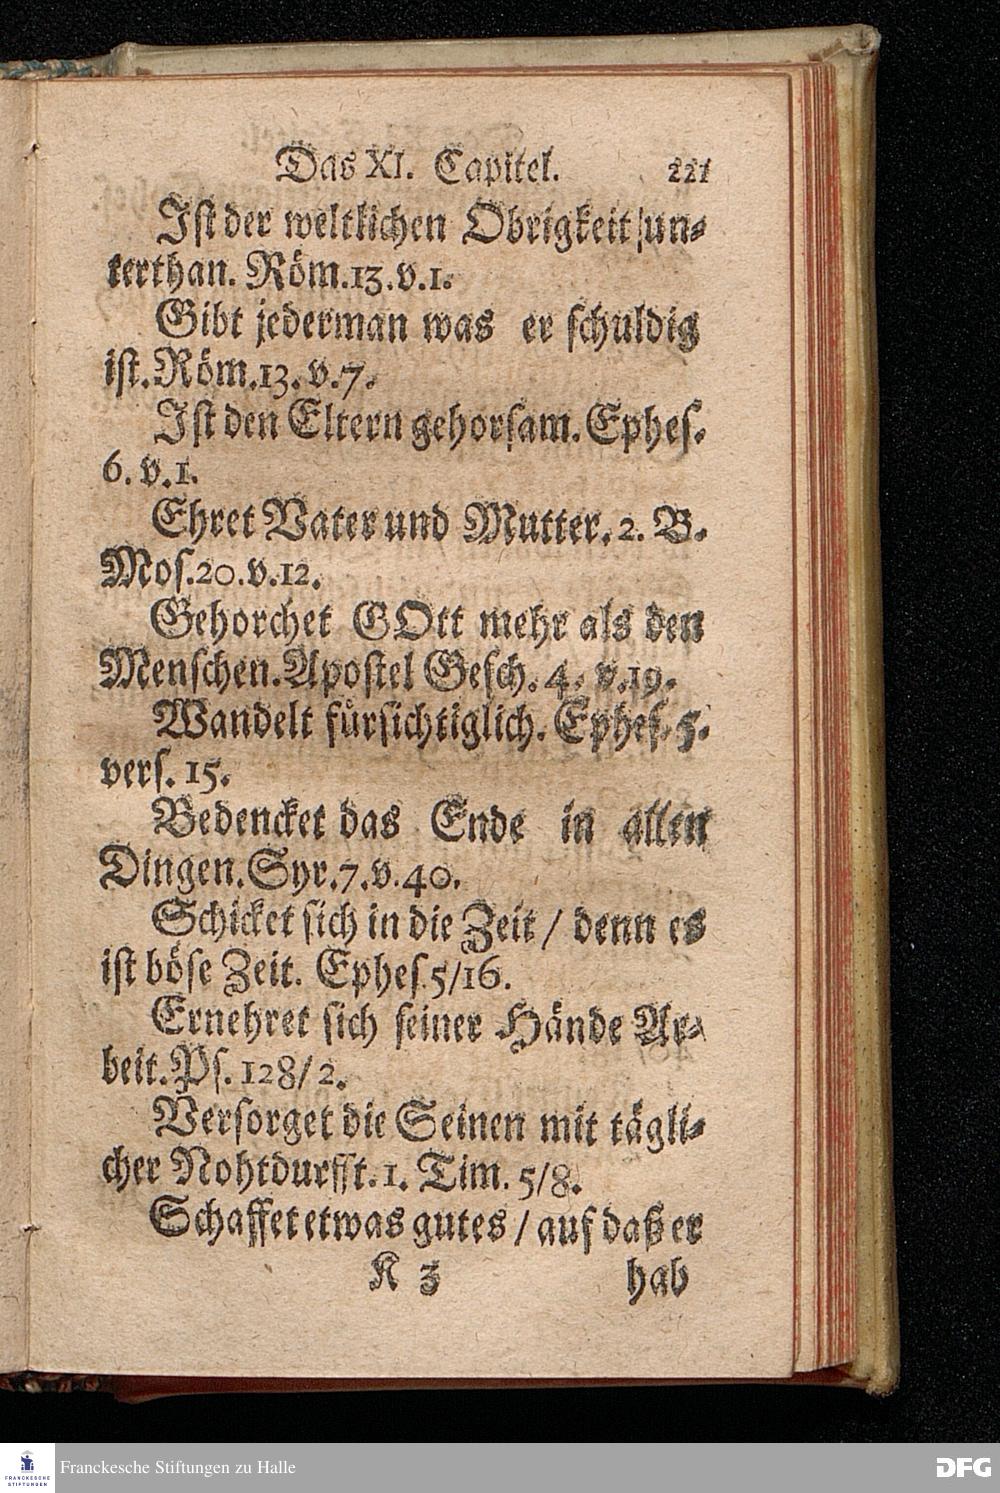 Das XI. Capitel. 221
Ist der weltlichen Obrigkeit / un⸗
terthan. Röm.13.v.1.
Gibt jederman was er schuldig
ist. Röm.13.v.7.
Ist den Eltern gehorsam. Ephes.
6.v.1.
Ehret Vater und Mutter. 2. B.
Mos.20.v.12.
Gehorchet GOtt mehr als den
Menschen. Apostel Gesch. 4. v.19.
Wandelt fürsichtiglich. Ephes. 5.
vers. 15.
Bedencket das Ende in allen
Dingen. Syr.7.v.40.
Schicket sich in die Zeit / denn es
ist böse Zeit. Ephes.5/16.
Ernehret sich seiner Hände Ar⸗
beit. Ps. 128/2.
Versorget die Seinen mit tägli⸗
cher Nohtdurfft. 1. Tim. 5/8.
Schaffet etwas gutes / auf daß er
K 3 hab
FRANCKESCHE STIFTUNGEN
Franckesche Stiftungen zu Halle
DFG